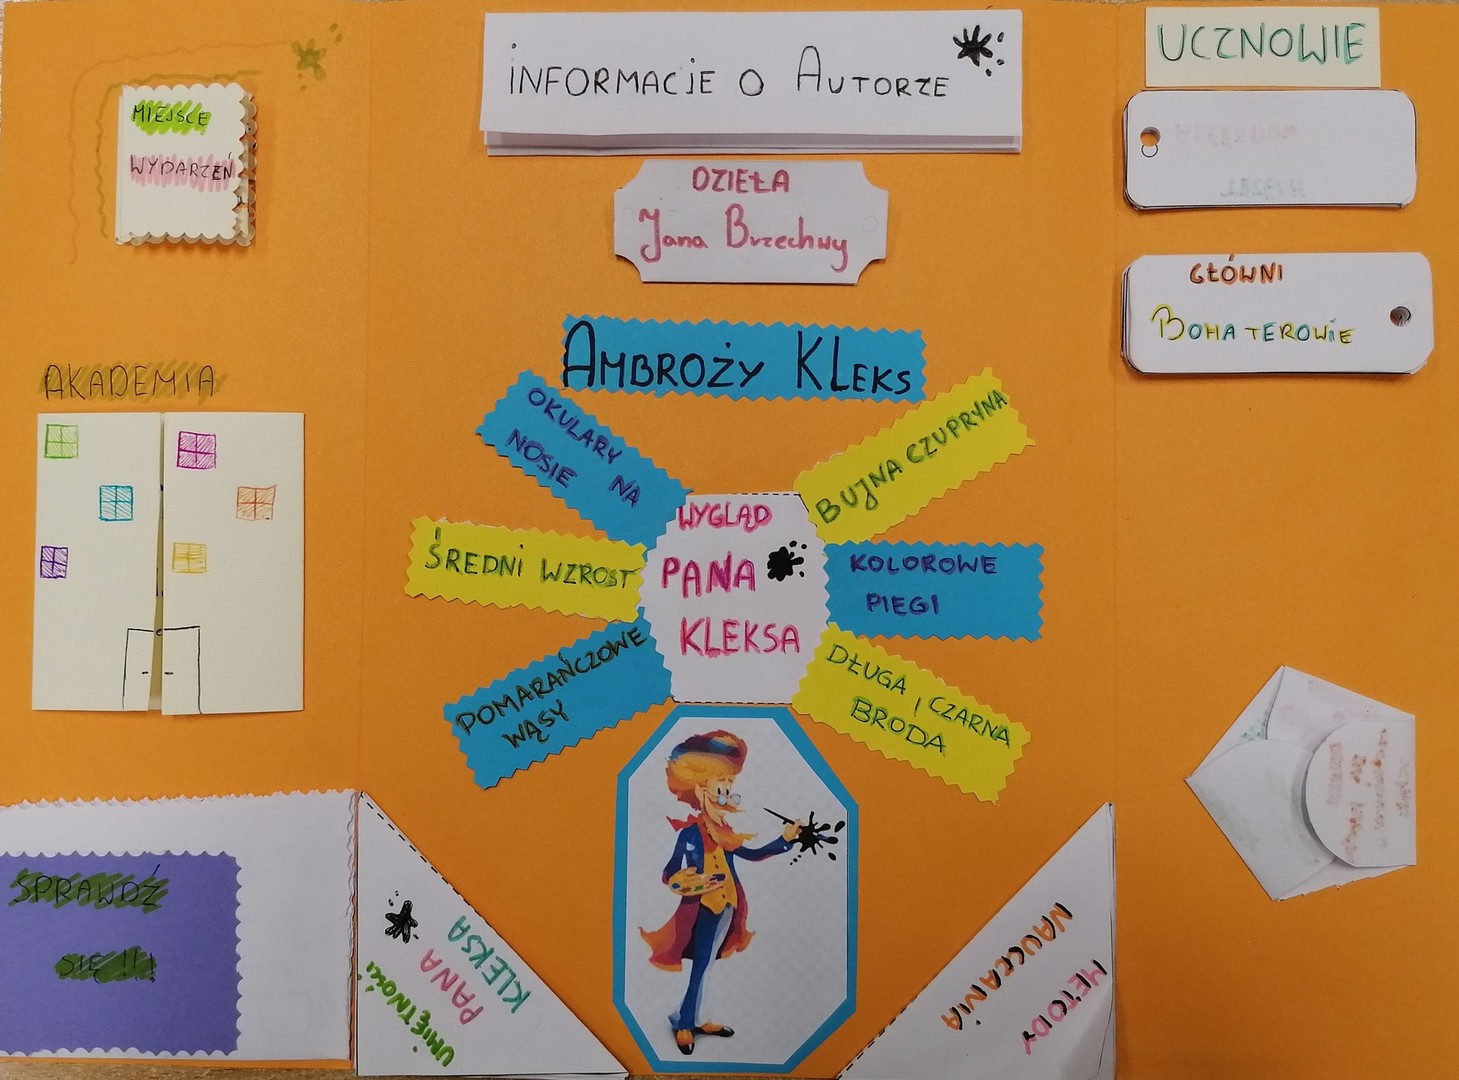 MIEJSCE
WYDARZEŃ
INFORMACJE O AUTORZE
DZIEŁA
Jana Brzechwy
UCZNOWIE
GŁÓWNI
BOHATEROWIE
AKADEMIA
AMBROŻY KLEKS
OKULARY NA
NOSIE
BUJNA CZUPRYNA
ŚREDNI WZROST
WYGLĄD
PANA
KLEKSA
KOLOROWE
PIEGI
POMARAŃCZOWE
WĄSY
DŁUGA I CZARNA
BRODA
SPRAWDŹ
SIĘ!!!
UMIĘTNOŚCI
PANA
KLEKSA
METODY
NAUCZANIA